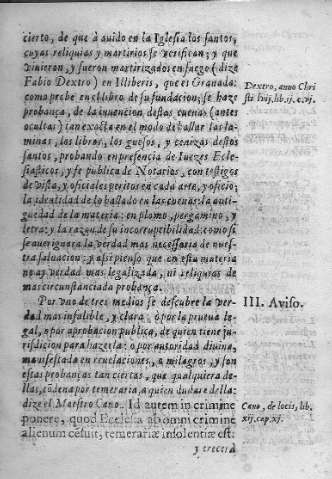 cierto, de que à auido en la Iglesia los santos,
cuyas reliquias y martirios se verifican; y que
vinieron, y fueron martirizados en fuego (dize
Fabio Dextro) en Illiberis, que es Granada:
como prebe en el libro de su fundacion; se haze
probança, de la inuencion destas cueuas (antes
ocultas) tan exacta en el modo de hallar las la-
minas, los libros, los guesos, y cenizas destos
santos, probando en presencia de Iuezes Ecle-
siasticos, y fe publica de Notarios, con testigos
de vista, y oficiales peritos en cada arte, y oficio;
la identidad de lo hallado en las cueuas: la anti-
guedad de la materia: en plomo, pergamino, y
letra: y la razon de su incorruptibilidad: como si
se aueriguera la verdad mas necessaria de nues-
tra saluacion: y assi pienso que en esta materia
no ay verdad mas legalizada, ni reliquias de
mas circunstanciada probança.
Por vno de tres medios se descubre la ver-
dad mas infalible, y clara, o por la prueua le-
gal, o por aprobacion publica, de quien tiene ju-
risdicion para hazerla: o por autoridad diuina,
manifestada en reuelaciones, a milagros, y son
estas probanças tan ciertas, que qualquiera de-
llas, condena por temeraria, a quien dudare della:
dize el Maestro Cano. Id autem in crimine
ponere, quod Ecclesia ab omni crimine
alienum censuit, temerariæ insolentiæ est:
y crecerà
Dextro, anno Chri
sti lvij, lib. ij. c. vj.
III. Auiso.
Cano, de locis, lib.
xij. cap. xj.